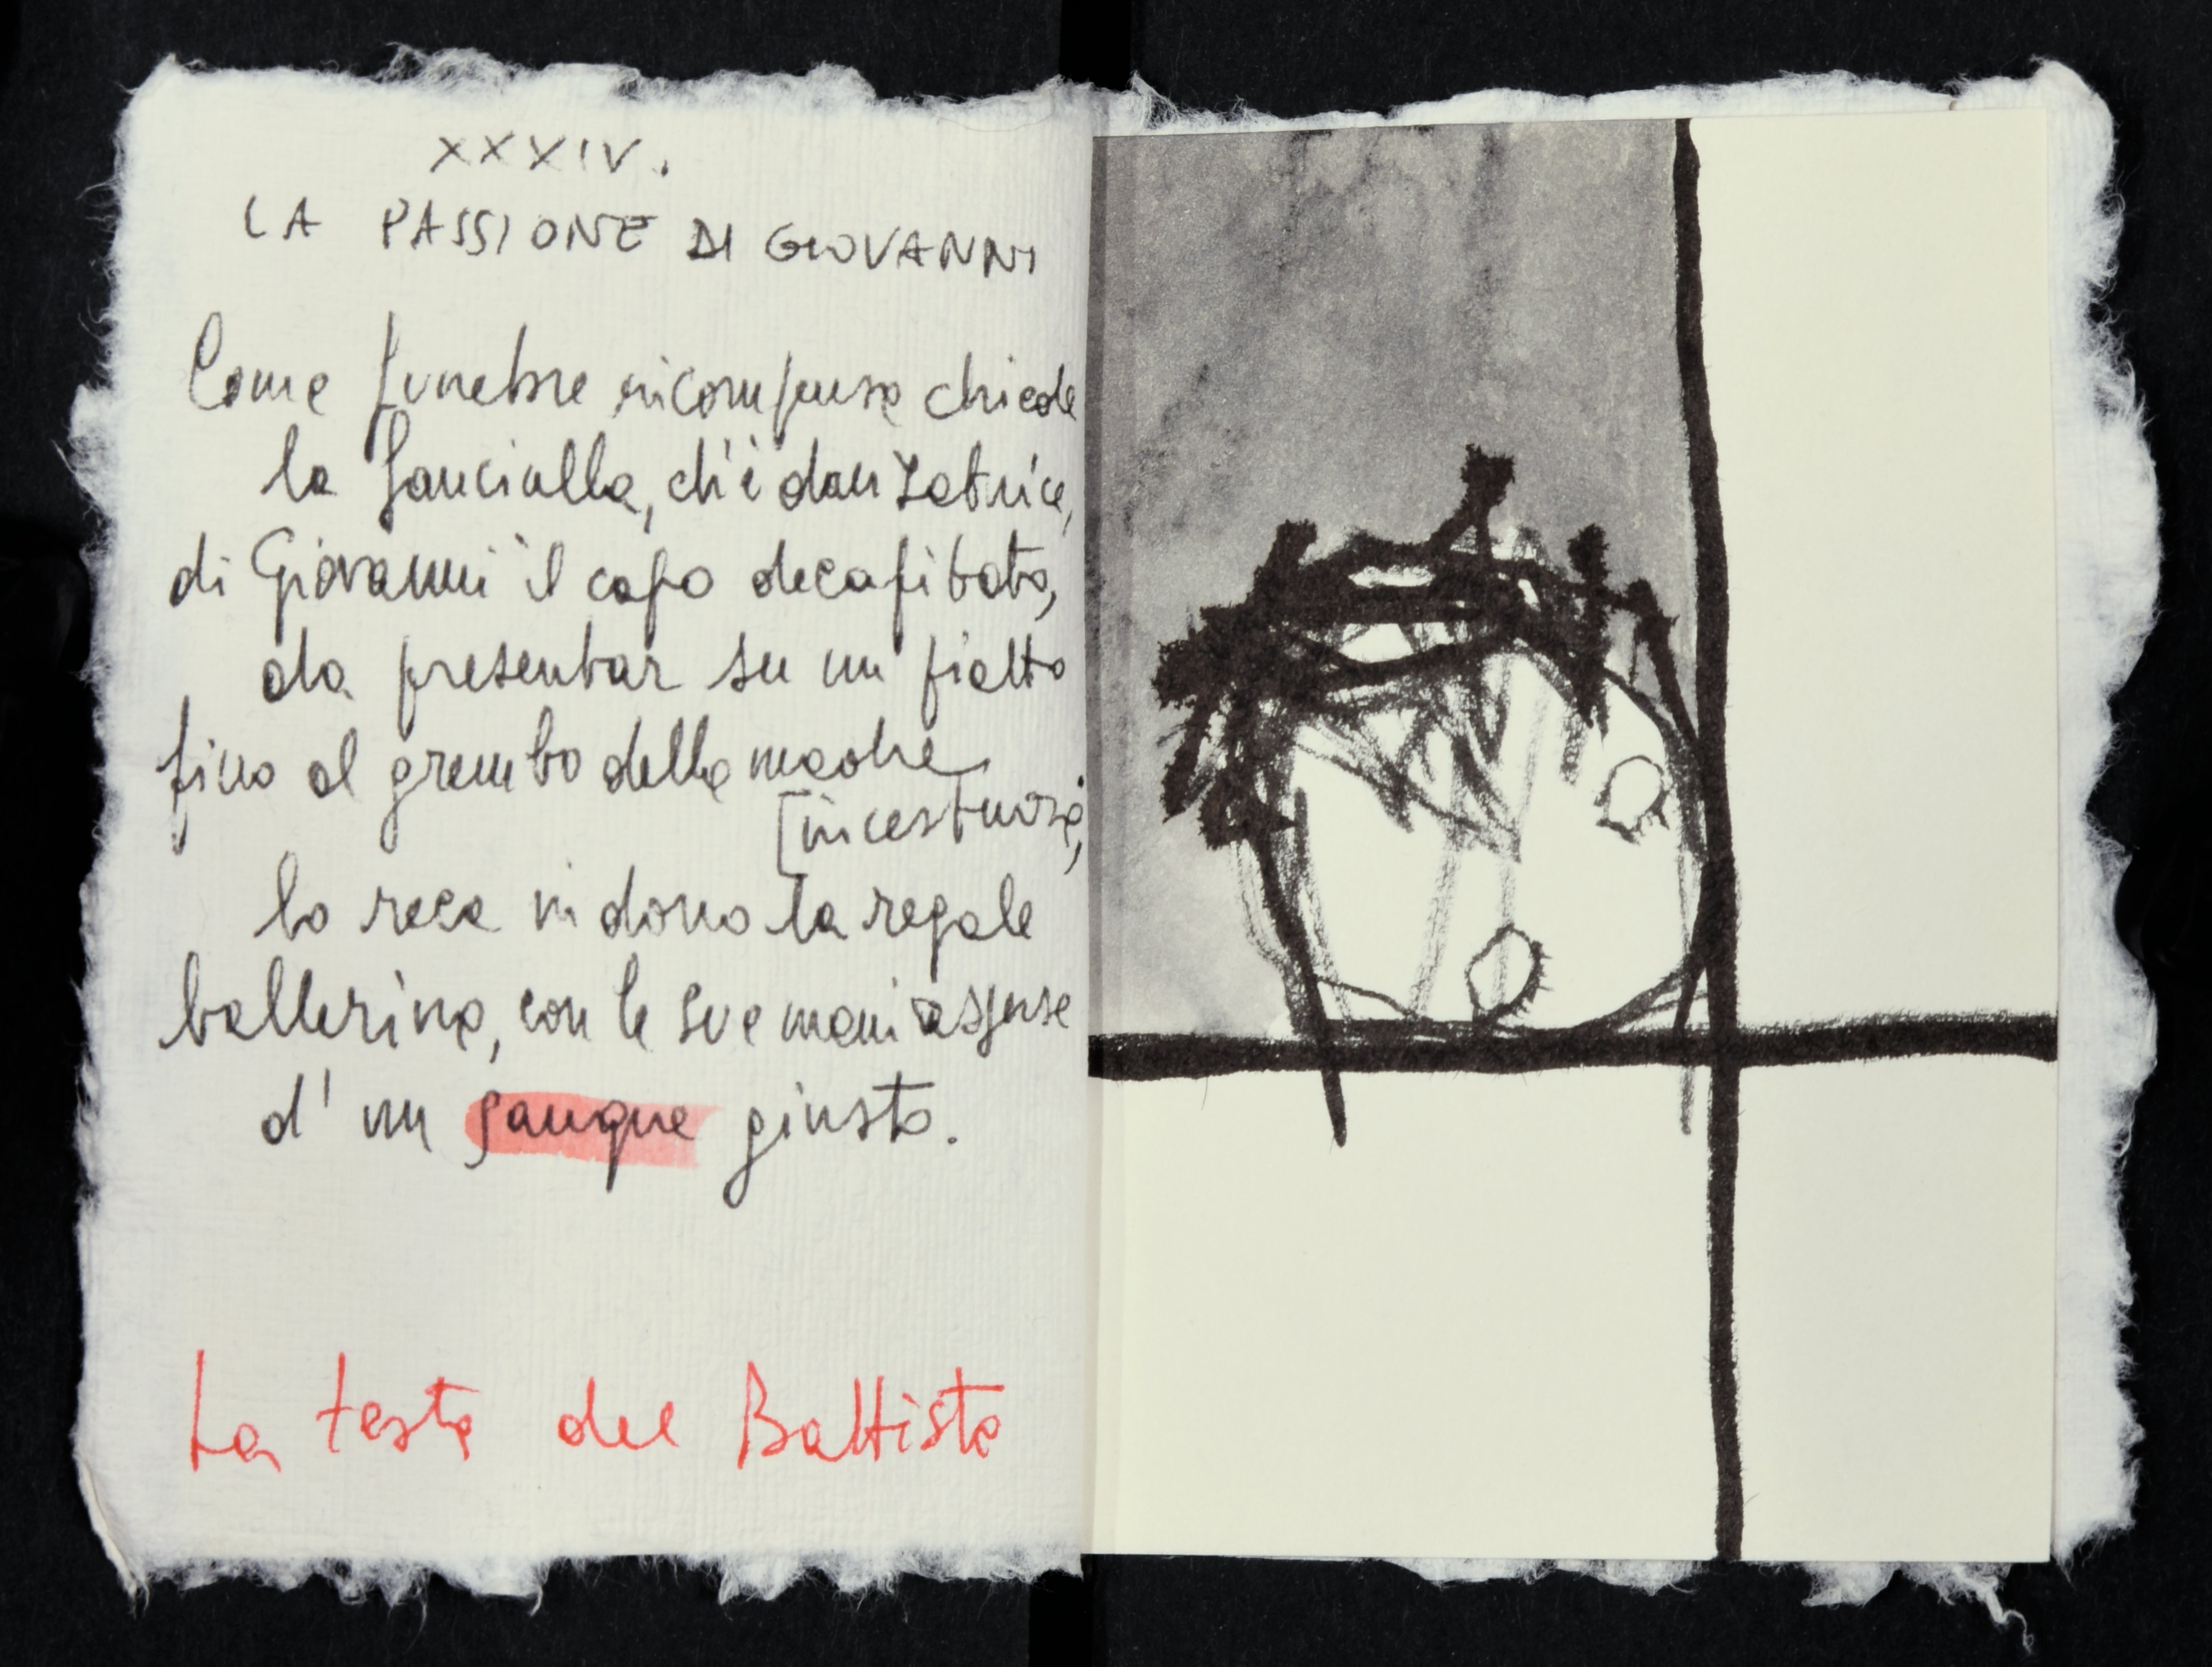 XXXIV.
LA PASSIONE DI GIOVANNI
Come funebre ricompensa chiede
la fanciulla, ch'è danzatrice,
di Giovanni il capo decapitato,
da presentar su un piatto
fino al grembo della madre
[incestuosa;
lo reca in dono la regale
ballerina, con le sue mani asperse
d'un sangue giusto.
La testa del Battista